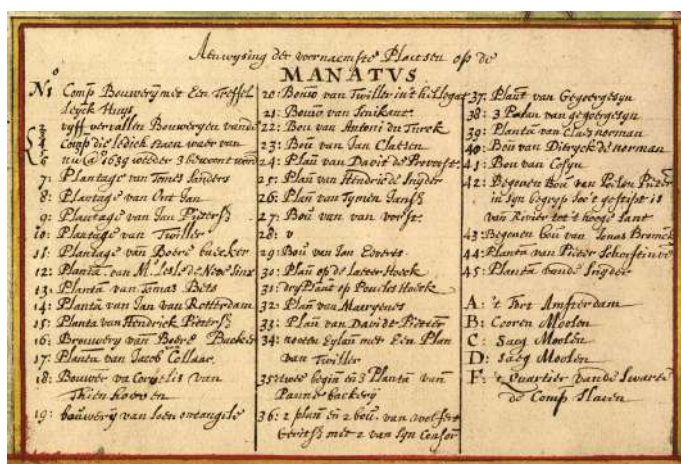 Aenwysing der voornaemste Plaetsen op de
MANATVS
No 1 Comp Bouwerij met Een Treffel
leyck Huys
2 vyff vervallen Bouweryen vande
3
4 Comp die ledich staen waer van
5
6 nu @ 1639 weeder 3 bewoont worden
7: Plantage van Tomes Sanders
8: Plantage van Out Jan
9: Plantage van Jan Pieterss
10: Plantage van Twiller
11: Plantage van Boere backer
12: Planta. van Mr. Lesle de Neve Sinx
13. Planta. van Tomas Bets
14: Planta van Jan van Rotterdam
15: Planta van Hendrick Pieterss
16: Brouwery van Boere Backer
17: Planta van Jacob Collaar
18: Bouwer va Cornelis van
Thienhooven
19: bouwery van
20: Bouw van Twiller in't hellegat
21: Bouw van Senikant
22: Bou van Antoni du Turck
23: Bou van Jan Claesen
24: Plan van Davit de Provoost
25: Plan van Hendric de Snyder
26: Plan van Tymen Janss
27: Bou van van vorst
28: v
29: Bou van Jan Everts
30: Plan op de Laeter Hoeck
31: dry Plant op Pouches Hoeck
32: Plan van Maerynes
33: Plan van Davidt Pieterss
34: nooten Eylan met Een Plan
van Twiller
35: twee begin en 3 Planta van
Panne backery
36: 2 plan en 2 bou. van wolfert
Gerritss met 2 van Syn Consor
37. Plant van Gegoergesyn
38: 3 Plan van gegoergesyn
39: Planta van claes norman
40: Bou van Dieryck de norman
41: Bou van Cosyn
42: Begonnen Bou van Jochem Pieter
in Syn begryp soo't gestipt is
van Rivier tot 't hooge Lant
43: Begonen bou van Jonas Bronck
44: Planta van Pieter Schorstinve
45: Planta vande Snyder
A: 't Fort Amsterdam
B: Cooren Moolen
C: Saeg Moolen
D: Saeg Moolen
F: 't Quartier vande Swarte
de Comp Slaven